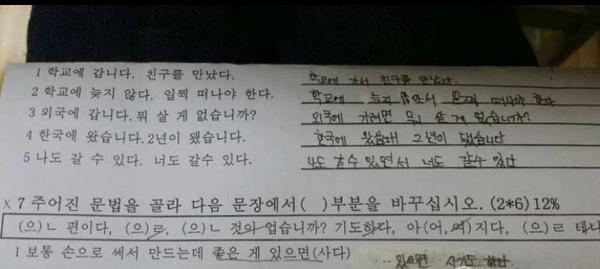 1 학교에 갑니다. 친구를 만났다. 학교에 가서 친구를 만났다.
2 학교에 늦지 않다. 일찍 떠나야 한다. 학교에 늦지 떠나야 한다
3 외국에 갑니다. 뭐 살 게 없습니까? 외국에 가려면 뭐 살 게 없습니까?
4 한국에 왔습니다. 2년이 됐습니다. 한국에 2년이 됐습니다
5 나도 갈 수 있다. 너도 갈수 있다. 나도 갈수 있면서 너도 갈수 있다
x 7 주어진 문법을 골라 다음 문장에서( )부분을 바꾸십시오. (2*6) 12%
(으)ㄴ 편이다, (으)르, (으)ㄴ 것의 없습니까? 기도하다, 아(어,여)지다, (으)ㄹ
1 보통 손으로 써서 만드는데 좋은 게 있으면(사다) 있으면